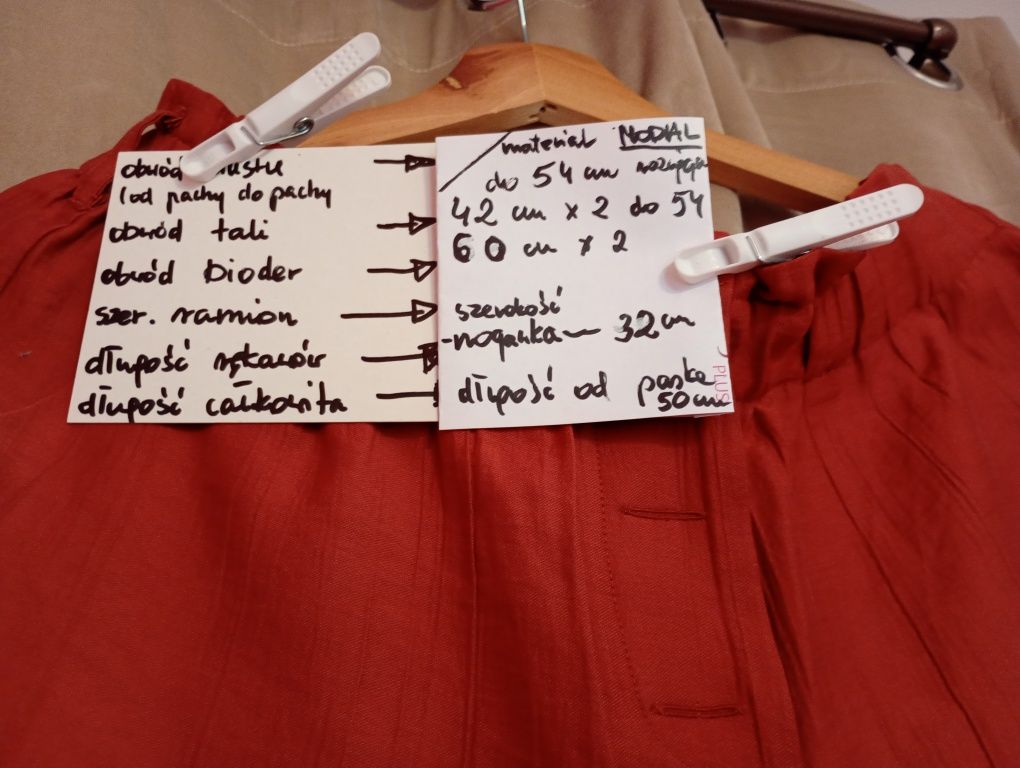 obwód biustu
(od pachy do pachy
obwód tali
obwód bioder
szer. ramion
długość rękawów
długość całkowita
materiał MODIAL
do 54 cm rozciąga
42 cm x 2 do 54
60 cm x 2
szerokość
-nogawka— 32 cm
długość od paska
50 cm
PLUS